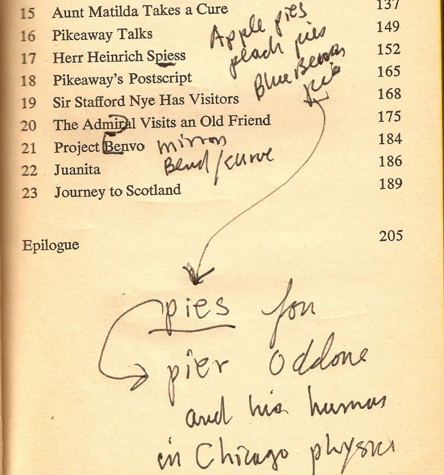 15 Aunt Matilda Takes a Cure 137
16 Pikeaway Talks 149
17 Herr Heinrich Spiess 152
18 Pikeaway's Postscript 165
19 Sir Stafford Nye Has Visitors 168
20 The Admiral Visits an Old Friend 175
21 Project Benvo 184
22 Juanita 186
23 Journey to Scotland 189
Epilogue 205
Apple pies
peach pies
Blue
mirror
Bend/curve
pies for
pier Oddone
and his humas
in Chicago physics